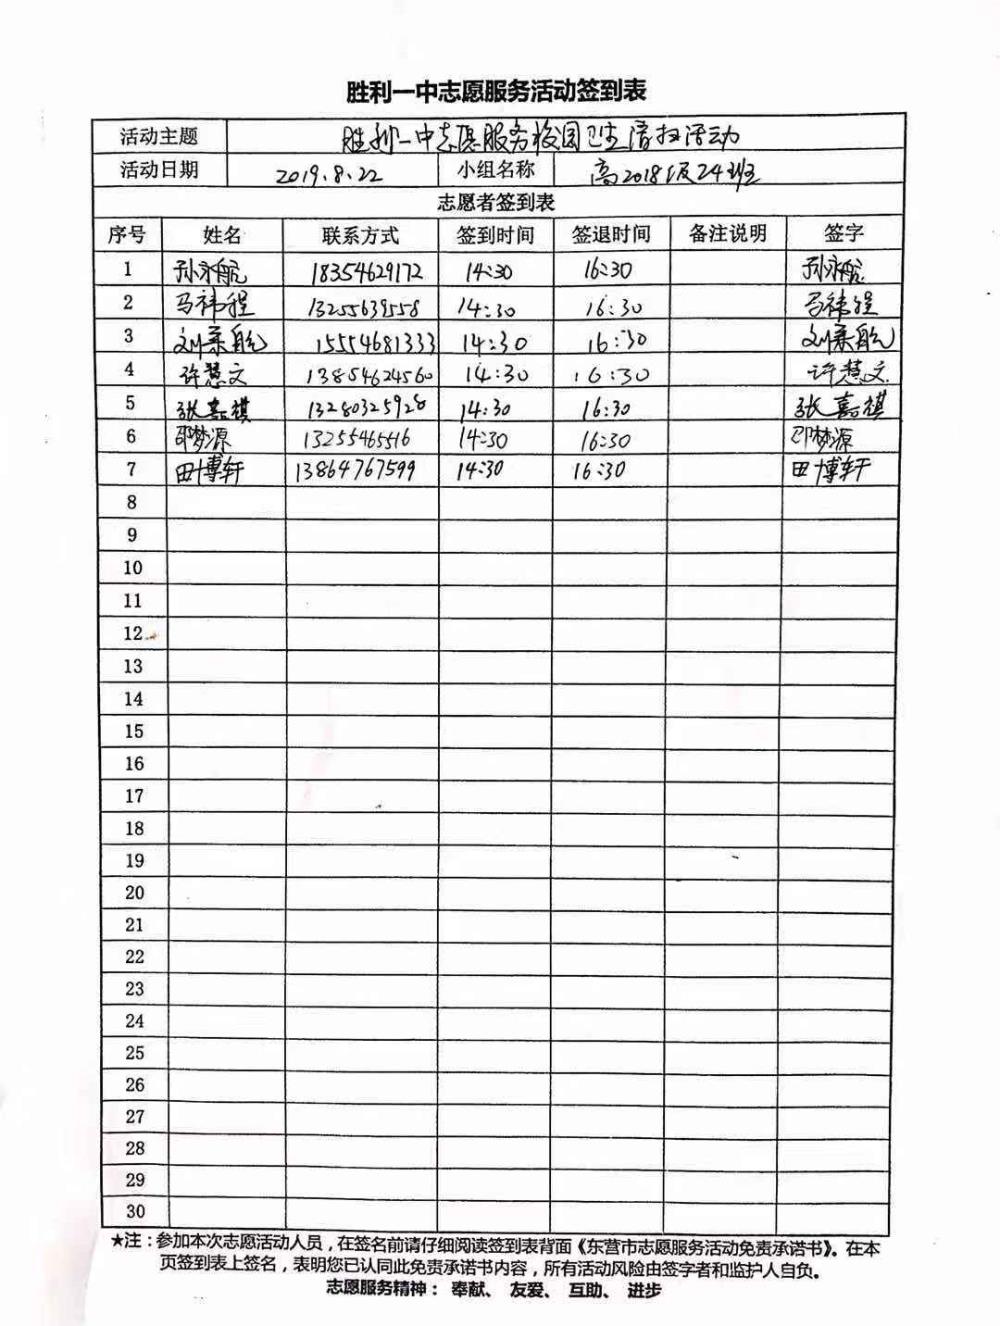 胜利一中志愿服务活动签到表
活动主题 胜利一中志愿服务校园卫生清扫活动
活动日期 2019.8.22 小组名称 高2018级24班
志愿者签到表
序号 姓名 联系方式 签到时间 签退时间 备注说明 签字
1 孙永航 18354629172 14:30 16:30 孙永航
2 马祎程 13255639558 14:30 16:30 马祎程
3 刘 航 15554681333 14:30 16:30 刘 航
4 许慧文 13854624560 14:30 16:30 许慧文
5 张嘉祺 13280325928 14:30 16:30 张嘉祺
6 邵梦源 13255465516 14:30 16:30 邵梦源
7 田博轩 13864767599 14:30 16:30 田博轩
8
9
10
11
12
13
14
15
16
17
18
19
20
21
22
23
24
25
26
27
28
29
30
★注：参加本次志愿活动人员，在签名前请仔细阅读签到表背面《东营市志愿服务活动免责承诺书》。在本
页签到表上签名，表明您已认同此免责承诺书内容，所有活动风险由签字者和监护人自负。
志愿服务精神： 奉献、 友爱、 互助、 进步